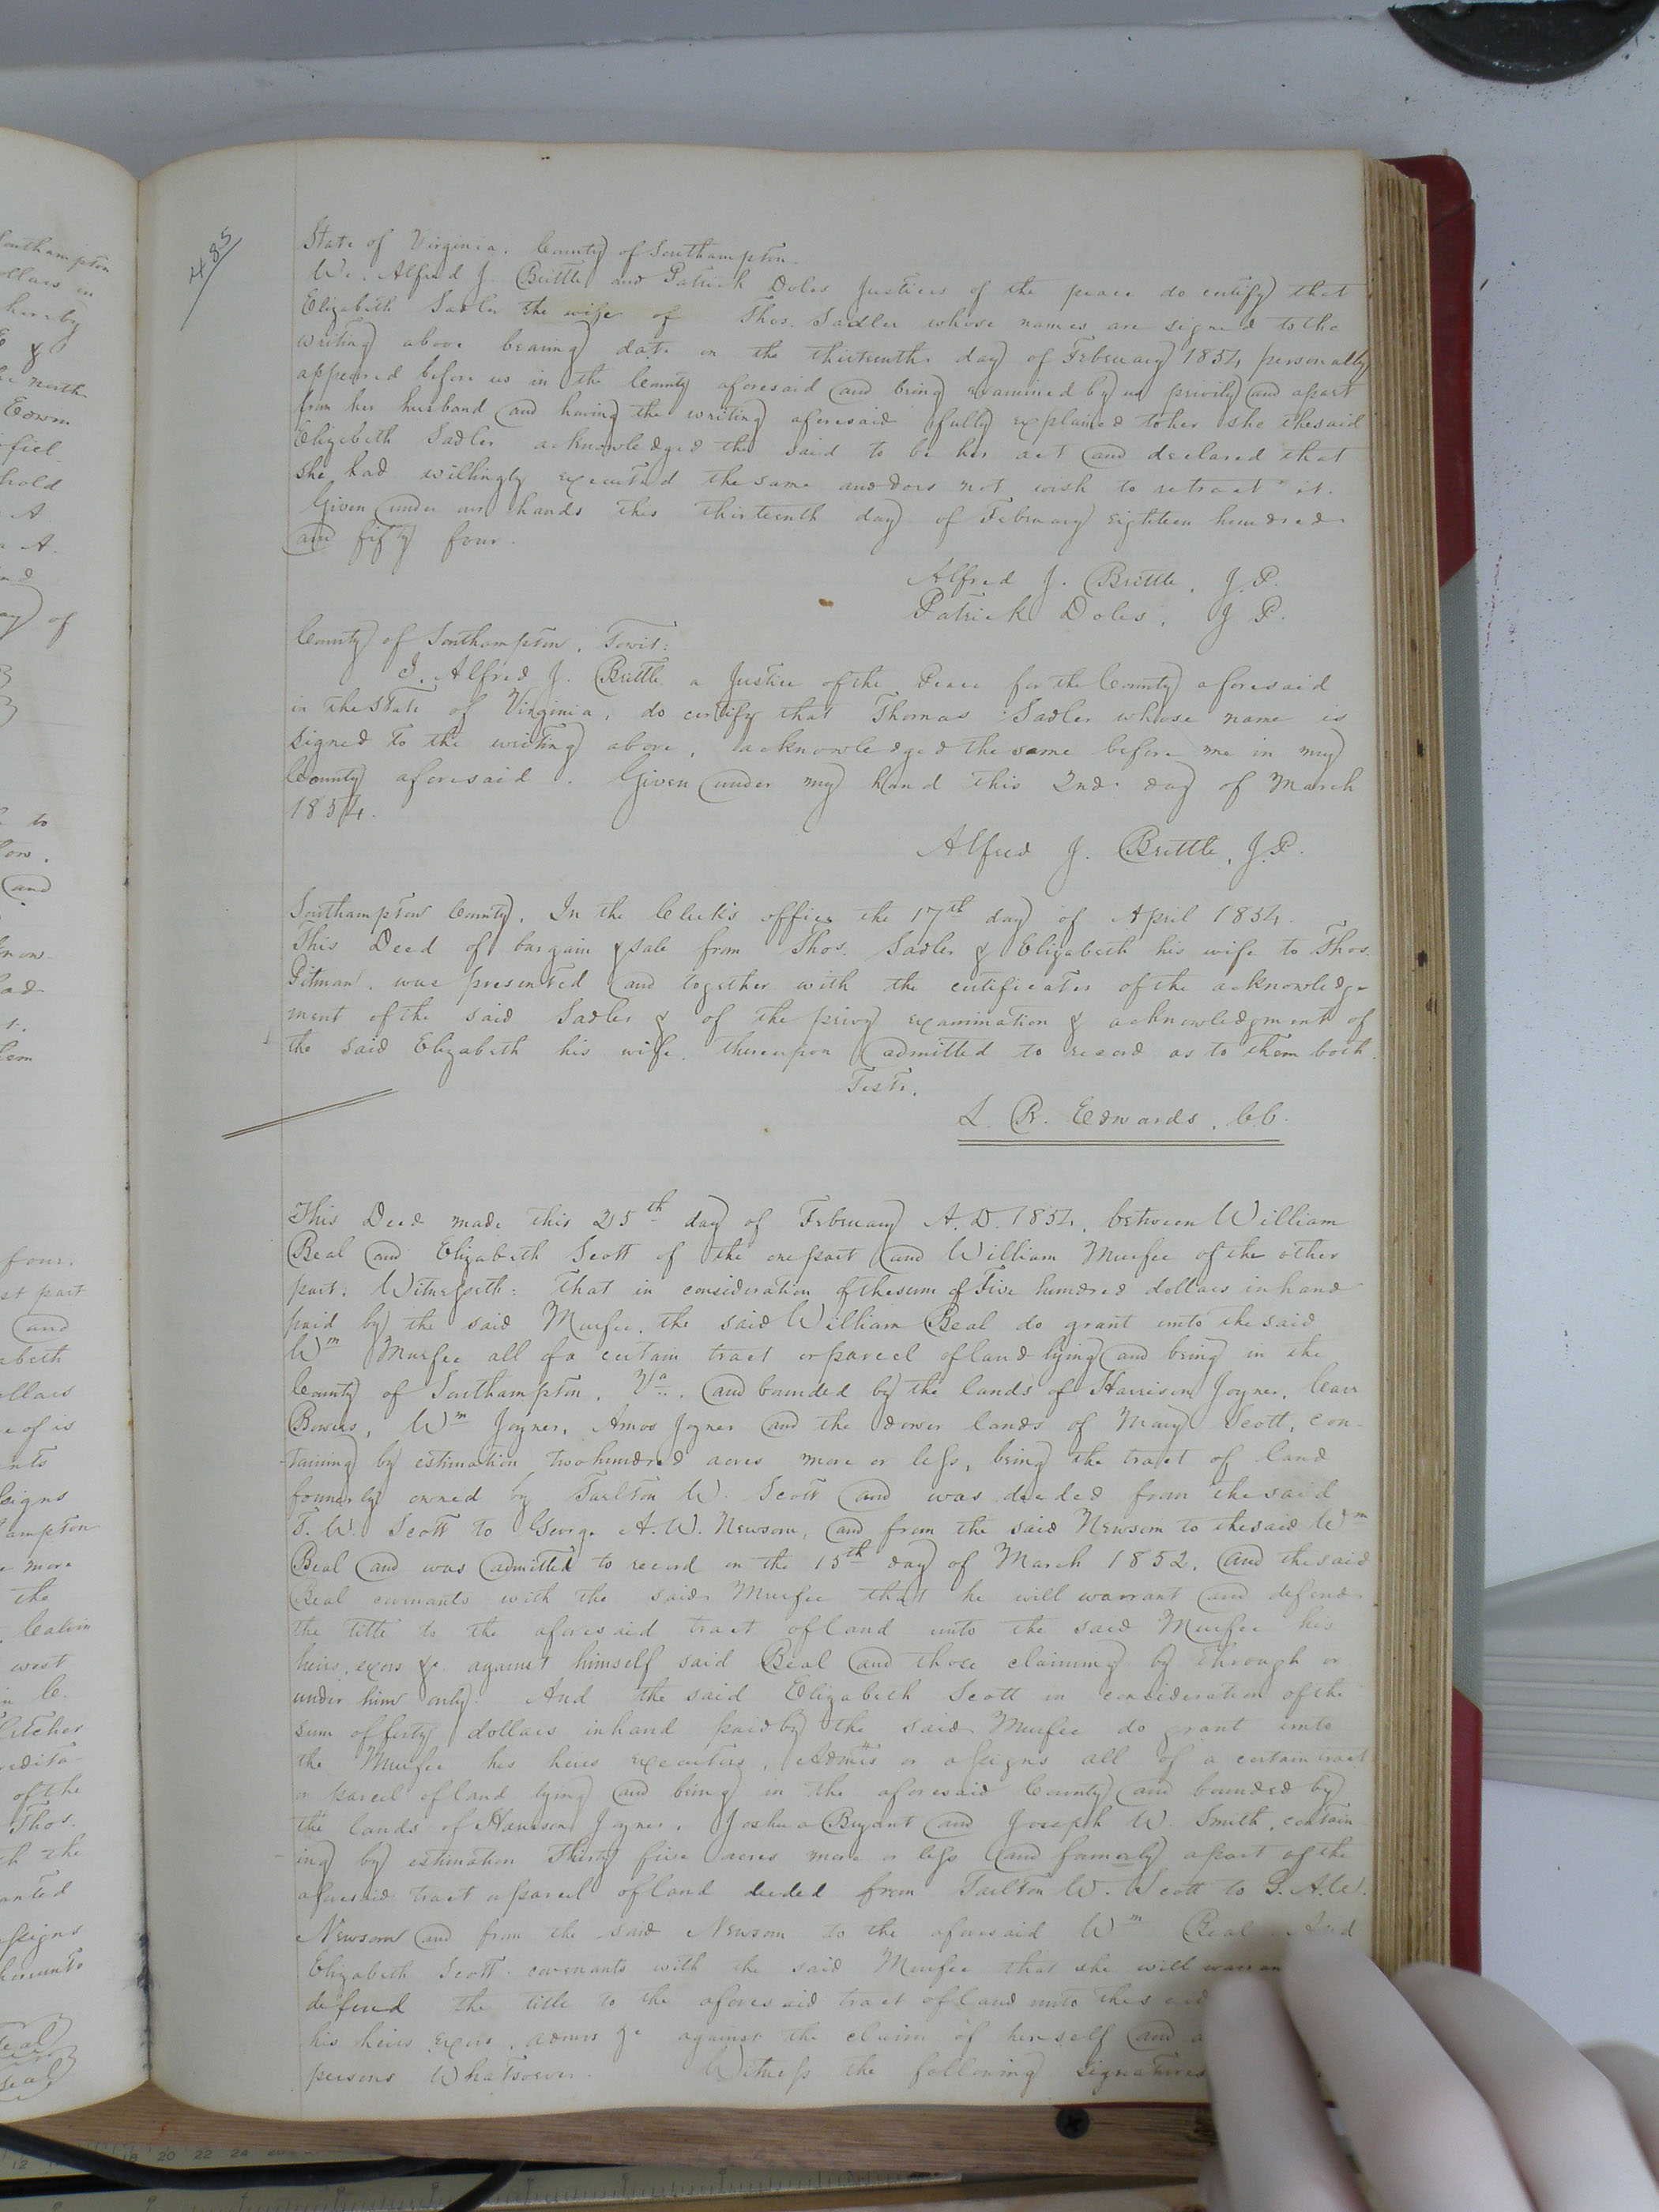 485
State of Virginia. County of Southampton.
We. Alfred J. Brittle and Patrick Doles Justices of the peace do certify that
Elizabeth Sadler the wife of Thos. Sadler whose names are signed to the
writing above bearing date on the thirteenth day of February 1854 personally
appeared before us in the County aforesaid and being examined by us privily and apart
from her husband and having the writing aforesaid fully explained to her she the said
Elizebeth Sadler acknowledged the said to be her act and declared that
she had willingly executed the same and does not wish to retract it.
Given under our hands this thirteenth day of February eighteen hundred
and fifty four.
Alfred J. Brittle, J. P.
Patrick Doles, J P.
County of Southampton, Towit:
I. Alfred J. Brittle a Justice of the Peace for the County aforesaid
in the State of Virginia, do certify that Thomas Sadler whose name is
signed to the writing above, acknowledged the same before me in my
County aforesaid. Given under my hand this 2nd day of March
1854.
Alfred J. Brittle, J.P.
Southampton County. In the Clerk's office the 17th day of April 1854.
This Deed of bargain & sale from Thos. Sadler & Elizabeth his wife to Thos.
Pitman. was presented and together with the certificates of the acknowledge-
ment of the said Sadler & of the privy examination & acknowledgment of
the said Elizabeth his wife, thereupon admitted to record as to them both.
Teste,
L. R. Edwards, C.C.
This Deed made this 25th day of February A. D. 1854, between William
Beal and Elizabeth Scott of the one part and William Murfee of the other
part. Witnesseth: That in consideration of the sum of Five hundred dollars in hand
paid by the said Murfee, the said William Beal do grant unto the said
Wm Murfee all of a certain tract or parcel of land lying and being in the
County of Southampton, Va. and bounded by the lands of Harrison Joyner, Carr
Bowers, Wm Joyner, Amos Joyner and the dower lands of Mary Scott, con-
taining by estimation two hundred acres more or less, being the tract of land
formerly owned by Tarlton W. Scott and was deeded from the said
T. W. Scott to George A. W. Newsom, and from the said Newsom to the said Wm
Beal and was admitted to record on the 15th day of March 1852. and the said
Beal cornants with the said Murfee that he will warrant and defend
the title to the aforesaid tract of land unto the said Murfee his
heirs, exors &c. against himself said Beal and those claiming by through or
under him only. And the said Elizabeth Scott in consideration of the
sum of forty dollars in hand paid by the said Murfee do grant unto
the Murfee his heirs executors, Admrs or assigns all of a certain tract
or parcel of land lying and being in the aforesaid County and bounded by
the lands of Harrison Joyner, Joshua Bryant and Joseph W. Smith, contain
ing by estimation Thirty five acres more or less and formerly a part of the
aforesaid tract or parcel of land deeded from Tarlton W. Scott to G. A. W.
Newsom and from the said Newsom to the aforesaid Wm Beal. And
Elizabeth Scott covenants with the said Murfee that she will
defend the title to the aforesaid tract of land unto the said
his heirs exors, admrs &c against the claim of herself and
persons Whatsoever. Witness the following signatures